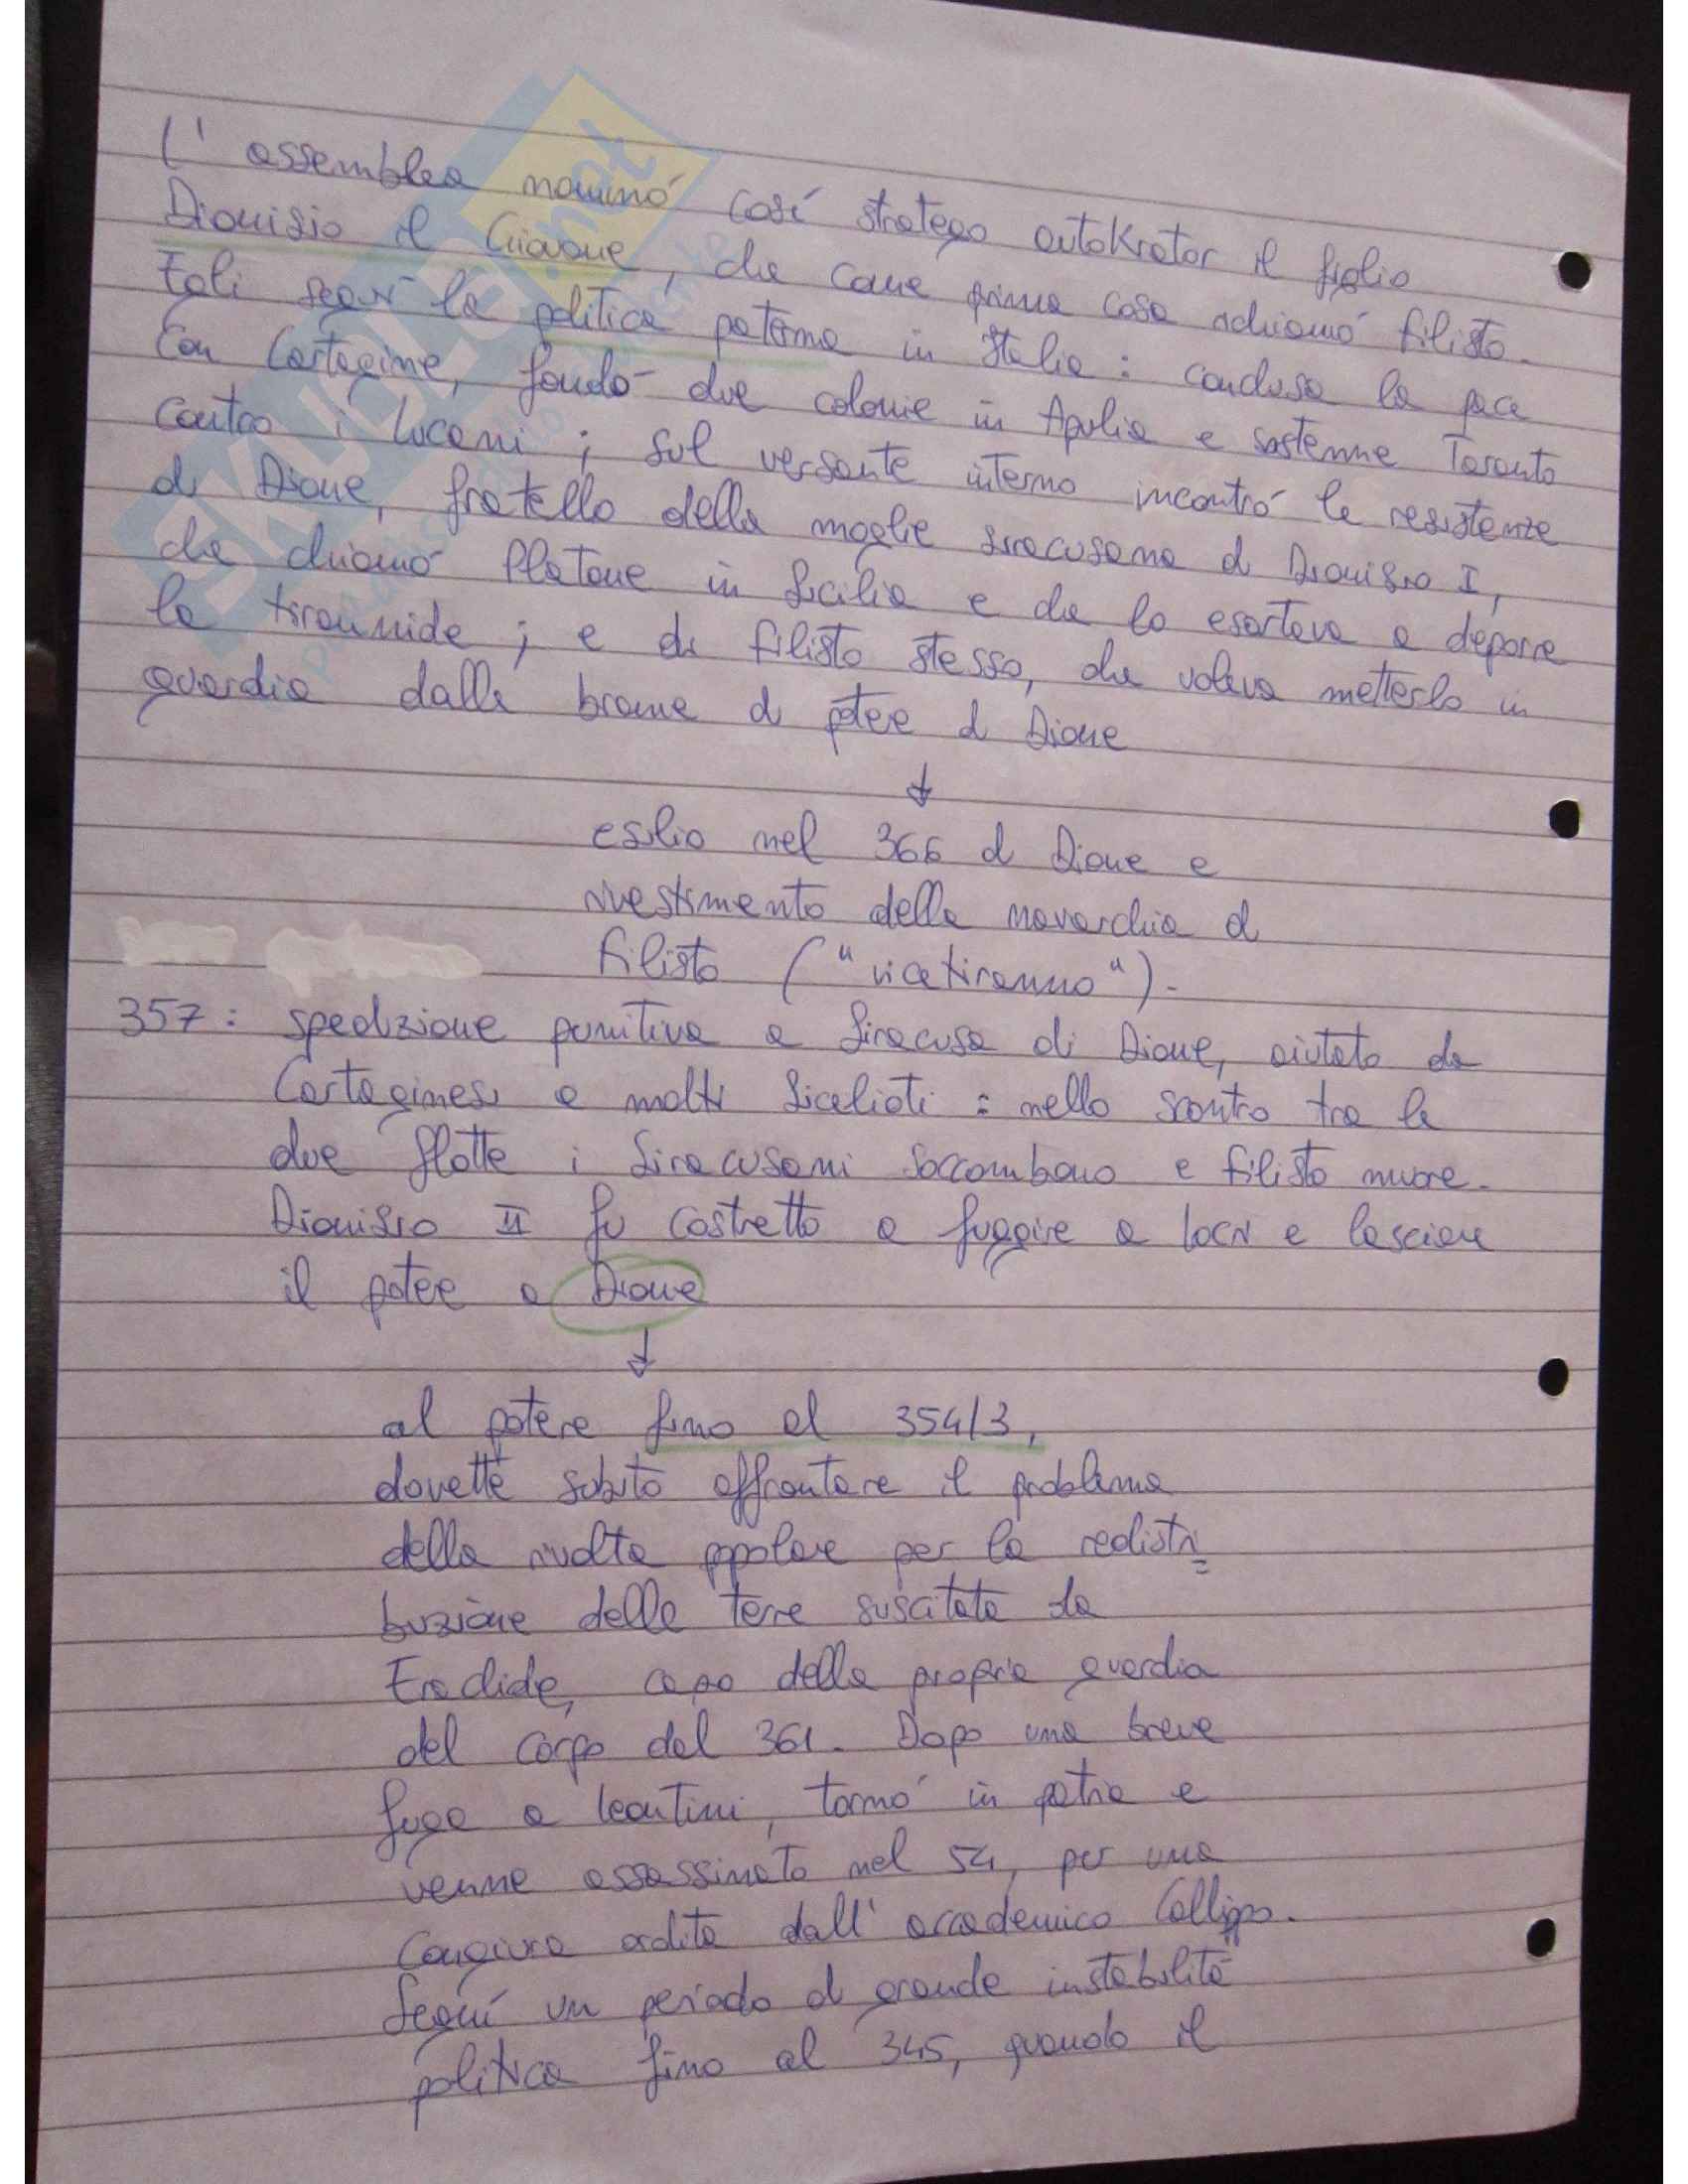 L'assemblea nominó cosí stratego autokrator il figlio
Dionisio il Giovane, che come prima cosa richiamó Filisto.
Egli seguí la politica paterna in Italia: concluse la pace
con Cartagine, fondó due colonie in Apulia e sostenne Taranto
contro i Lucani; sul versante interno incontró le resistenze
di Dione, fratello della moglie siracusana di Dionisio I,
che chiamó Platone in Sicilia e che lo esortava a deporre
la tirannide; e di Filisto stesso, che voleva metterlo in
guardia dalle brame di potere di Dione
↓
esilio nel 366 di Dione e
rivestimento della navarchia di
Filisto ("vicetiranno").
357: spedizione punitiva a Siracusa di Dione, aiutato da
Cartaginesi e molti Sicelioti: nello scontro tra le
due flotte i Siracusani soccombono e Filisto muore.
Dionisio II fu costretto a fuggire a Locri e lasciare
il potere a Dione
↓
al potere fino al 354/3,
dovette subito affrontare il problema
della rivolta popolare per la redistri=
buzione delle terre suscitata da
Eraclide, capo della propria guardia
del corpo dal 361. Dopo una breve
fuga a Leontini, tornó in patria e
venne assassinato nel 54, per una
congiura ordita dall'accademico Callippo.
Seguí un periodo di grande instabilitá
politica fino al 345, quando il
SKUOLA.net